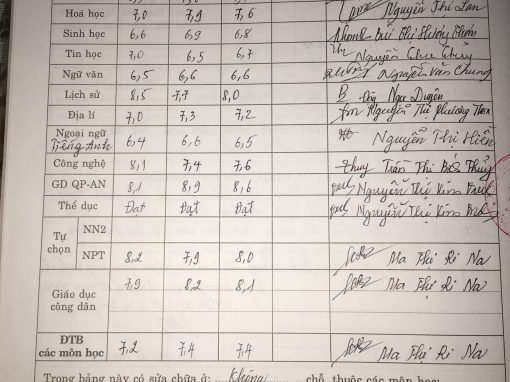 Hoá học 7,0 7,9 7,6 Nguyễn Thị Lan
Sinh học 6,6 6,9 6,8 Bùi Thị Hương
Tin học 7,0 6,5 6,7 Nguyễn Chu Thủy
Ngữ văn 6,5 6,6 6,6 Nguyễn Văn Chung
Lịch sử 8,5 7,7 8,0 Ngọc Duyên
Địa lí 7,0 7,3 7,2 Nguyễn Thị Phương
Ngoại ngữ 6,4 6,6 6,5 Nguyễn Thị Hiền
Tiếng Anh
Công nghệ 8,1 7,4 7,6 thuy Trần Thị Thủy
GD QP-AN 8,1 8,9 8,6 Nguyễn Thị Kim
Thể dục Đạt Đạt Đạt Nguyễn Thị Kim
Tự chọn NN2
NPT 8,2 7,9 8,0 Ma Thị Ri Na
Giáo dục công dân 7,9 8,2 8,1 Ma Thị Ri Na
ĐTB các môn học 7,2 7,4 7,4 Ma Thị Ri Na
Trong bảng này có sửa chữa ở: Không chỗ, thuộc các môn học: